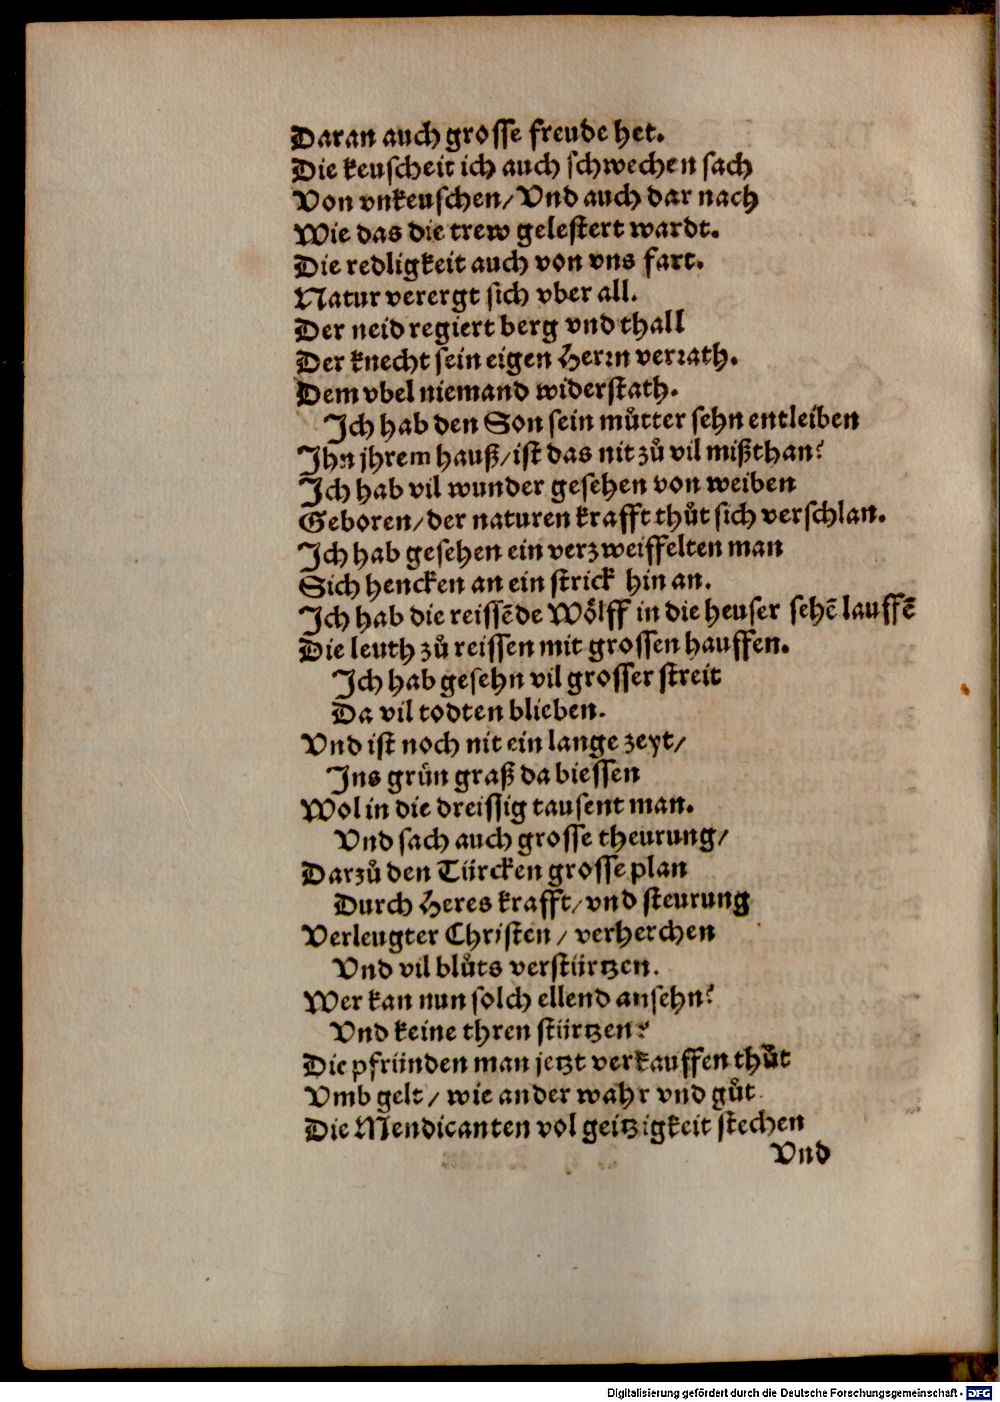 Daran auch grosse freude het.
Die keuscheit ich auch schwechen sach
Von vnkeuschen/ Vnd auch dar nach
Wie das die trew gelestert wardt.
Die redligkeit auch von vns fart.
Natur verergt sich vber all.
Der neid regiert berg vnd thall
Der knecht sein eigen Herrn verrath.
Dem vbel niemand widerstath.
Ich hab den Son sein můtter sehn entleiben
Ihn jhrem hauß/ ist das nit zů vil mißthan?
Ich hab vil wunder gesehen von weiben
Geboren/ der naturen krafft thůt sich verschlan.
Ich hab gesehen ein verzweiffelten man
Sich hencken an ein strick hin an.
Ich hab die reissēde Wölff in die heuser sehē lauffē
Die leuth zů reissen mit grossen hauffen.
Ich hab gesehn vil grosser streit
Da vil todten blieben.
Vnd ist noch nit ein lange zeyt/
Ins grůn graß da biessen
Wol in die dreissig tausent man.
Vnd sach auch grosse theurung/
Darzů den Türcken grosse plan
Durch Heres krafft/ vnd steurung
Verleugter Christen/ verherchen
Vnd vil blůts verstürtzen.
Wer kan nun solch ellend ansehn?
Vnd keine thren stürtzen?
Die pfründen man jetzt verkauffen thůt
Vmb gelt/ wie ander wahr vnd gůt
Die Mendicanten vol geitzigkeit stechen
Vnd
Digitalisierung gefördert durch die Deutsche Forschungsgemeinschaft - DFG